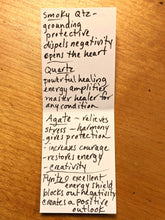 Smoky Qtz-
grounding
protective
dispels negativity
opens the heart
Quartz
powerful healing
energy amplifier
master healer for
any condition
Agate - relieves
stress - harmony
gives protection
- increases courage
- restores energy
- creativity
Pyrite excellent
energy shield
blocks out negativity
creates a positive
outlook